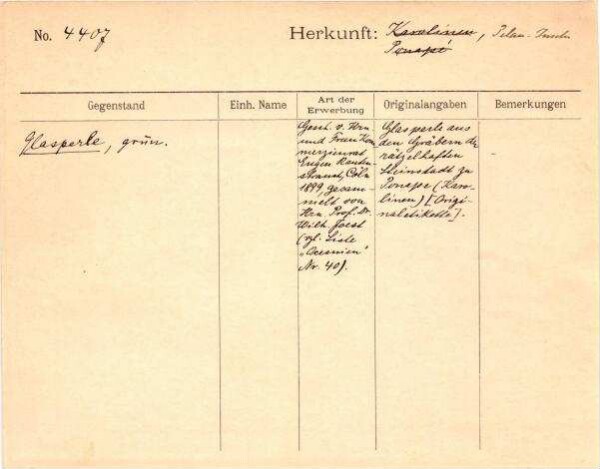 No. 4407
Herkunft: Karolinen, Pelau-Inseln
Ponapé
Gegenstand
Einh. Name
Art der
Erwerbung
Originalangaben
Bemerkungen
Glasperle, grün.
Gesch. v. Hrn.
und Frau Kom-
merzienrat
Eugen Rauten-
strauch, Cöln
1899, gesam-
melt von
Hrn. Prof. Dr.
Wilh. Joest
(vgl. Liste
„Oceanien"
Nr. 40).
Glasperle aus
den Gräbern der
rätzelhaften
Steinstadt zu
Ponape (Karo-
linen) [Origi-
naletikette].